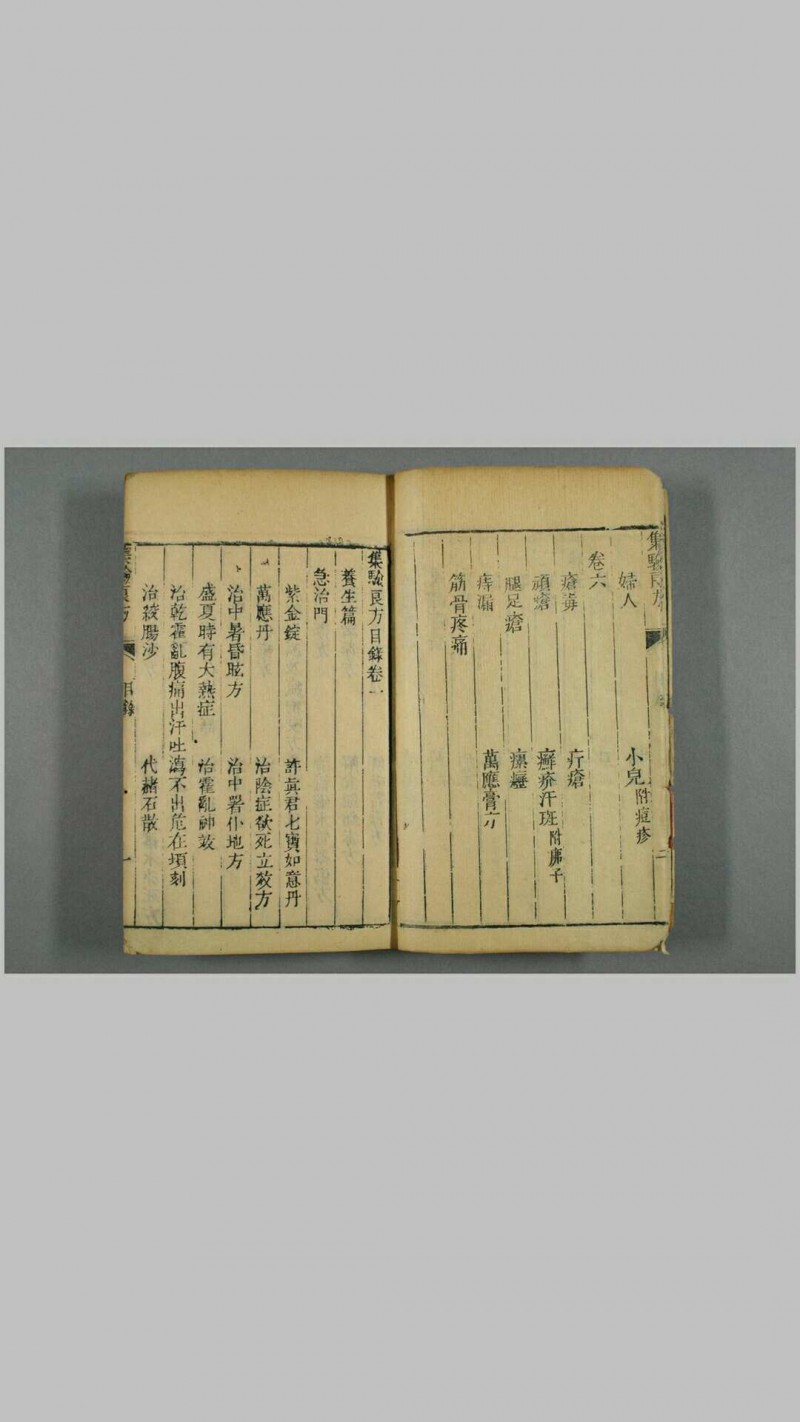 集驗良方
婦人 小兒附痘疹
卷六
瘡毒 疔瘡
頑瘡 癬疥汗斑附痱子
腿足瘡 瘰癧
痔漏 萬應膏方
筋骨疼痛
二
集驗良方目錄卷一
養生篇
急治門
紫金錠 許真君七寶如意丹
萬應丹 治陰症欲死立效方
治中暑昏眩方 治中暑仆地方
盛夏時有大熱症 治霍亂神效
治乾霍亂腹痛出汗吐瀉不出危在頃刻
治絞腸沙 代赭石散
集驗良方 目錄 一